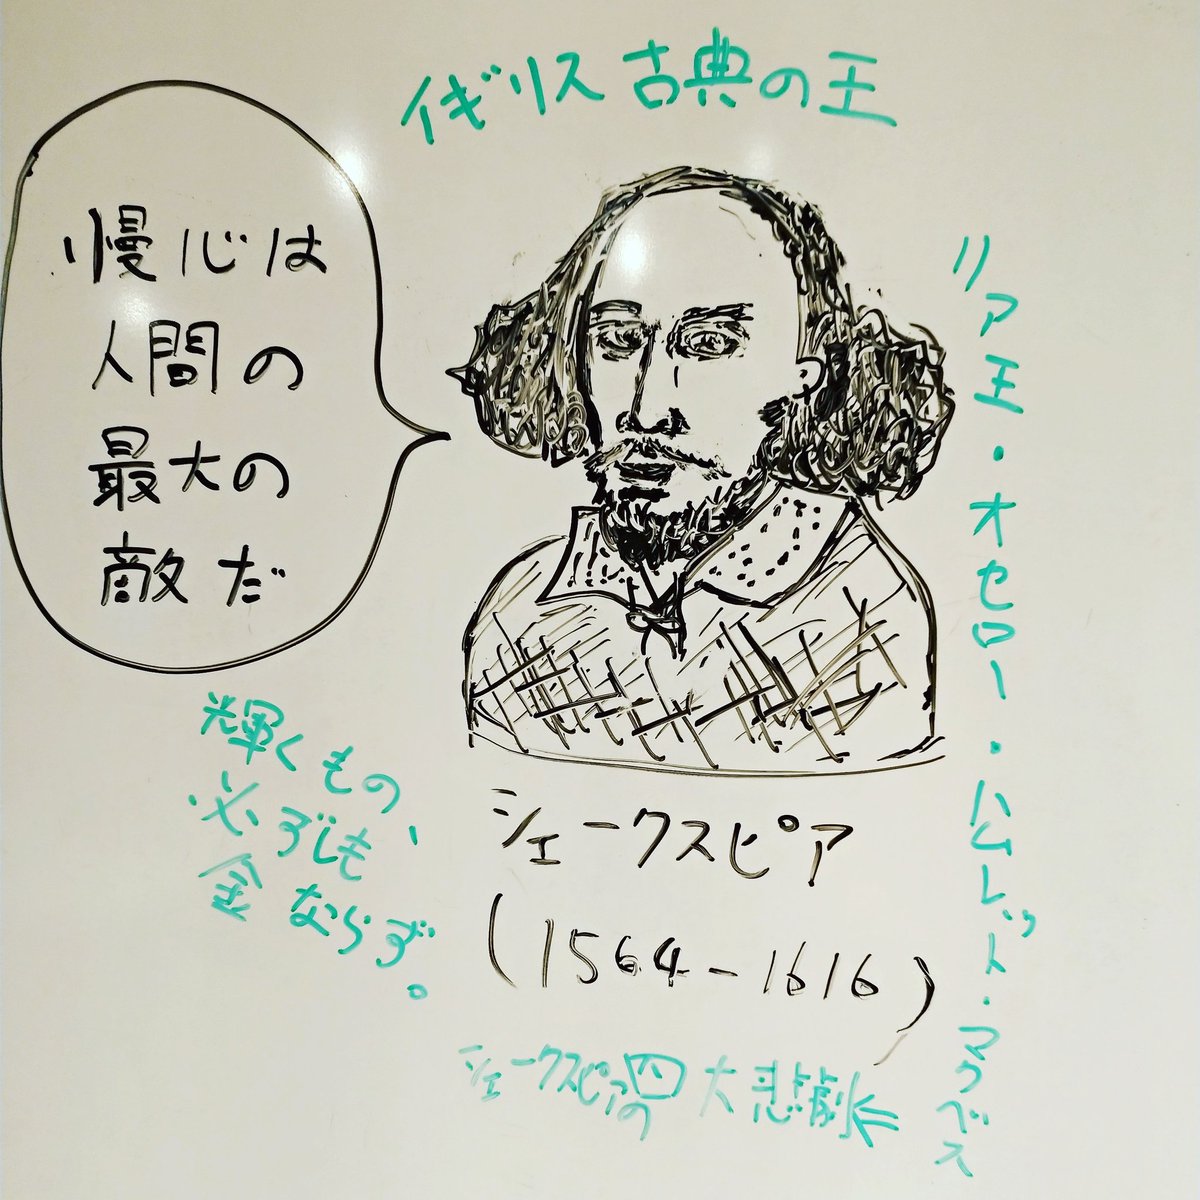 イギリス古典の王
慢心は
人間の
最大の
敵だ
リア王・オセロー・ハムレット・マクベス
輝くもの、
必ずしも
金ならず。
シェークスピア
(1564-1616)
シェークスピアの四大悲劇